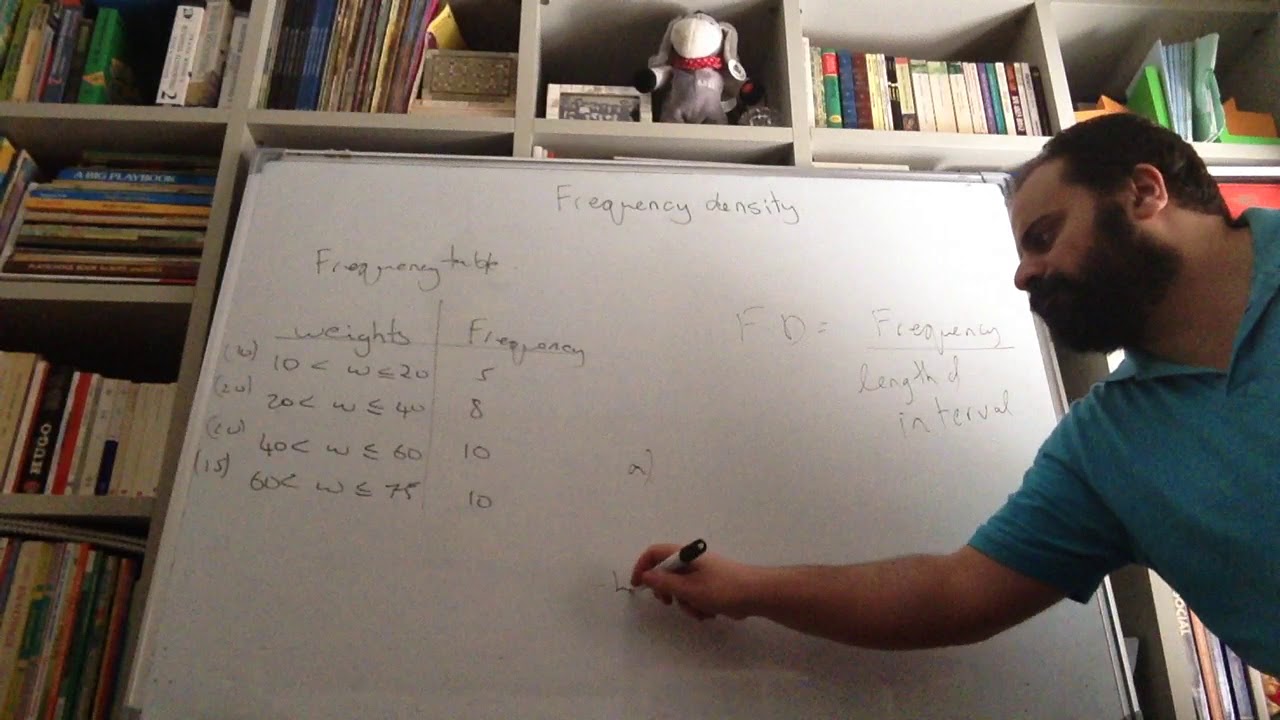 A BIG PLAYBOOK
HUGO
Frequency density
Frequency table
weights Frequency
(10) 10 < w ≤ 20 5
(20) 20 < w ≤ 40 8
(20) 40 < w ≤ 60 10
(15) 60 < w ≤ 75 10
F D = Frequency
length of
interval
a)
SOCIAL